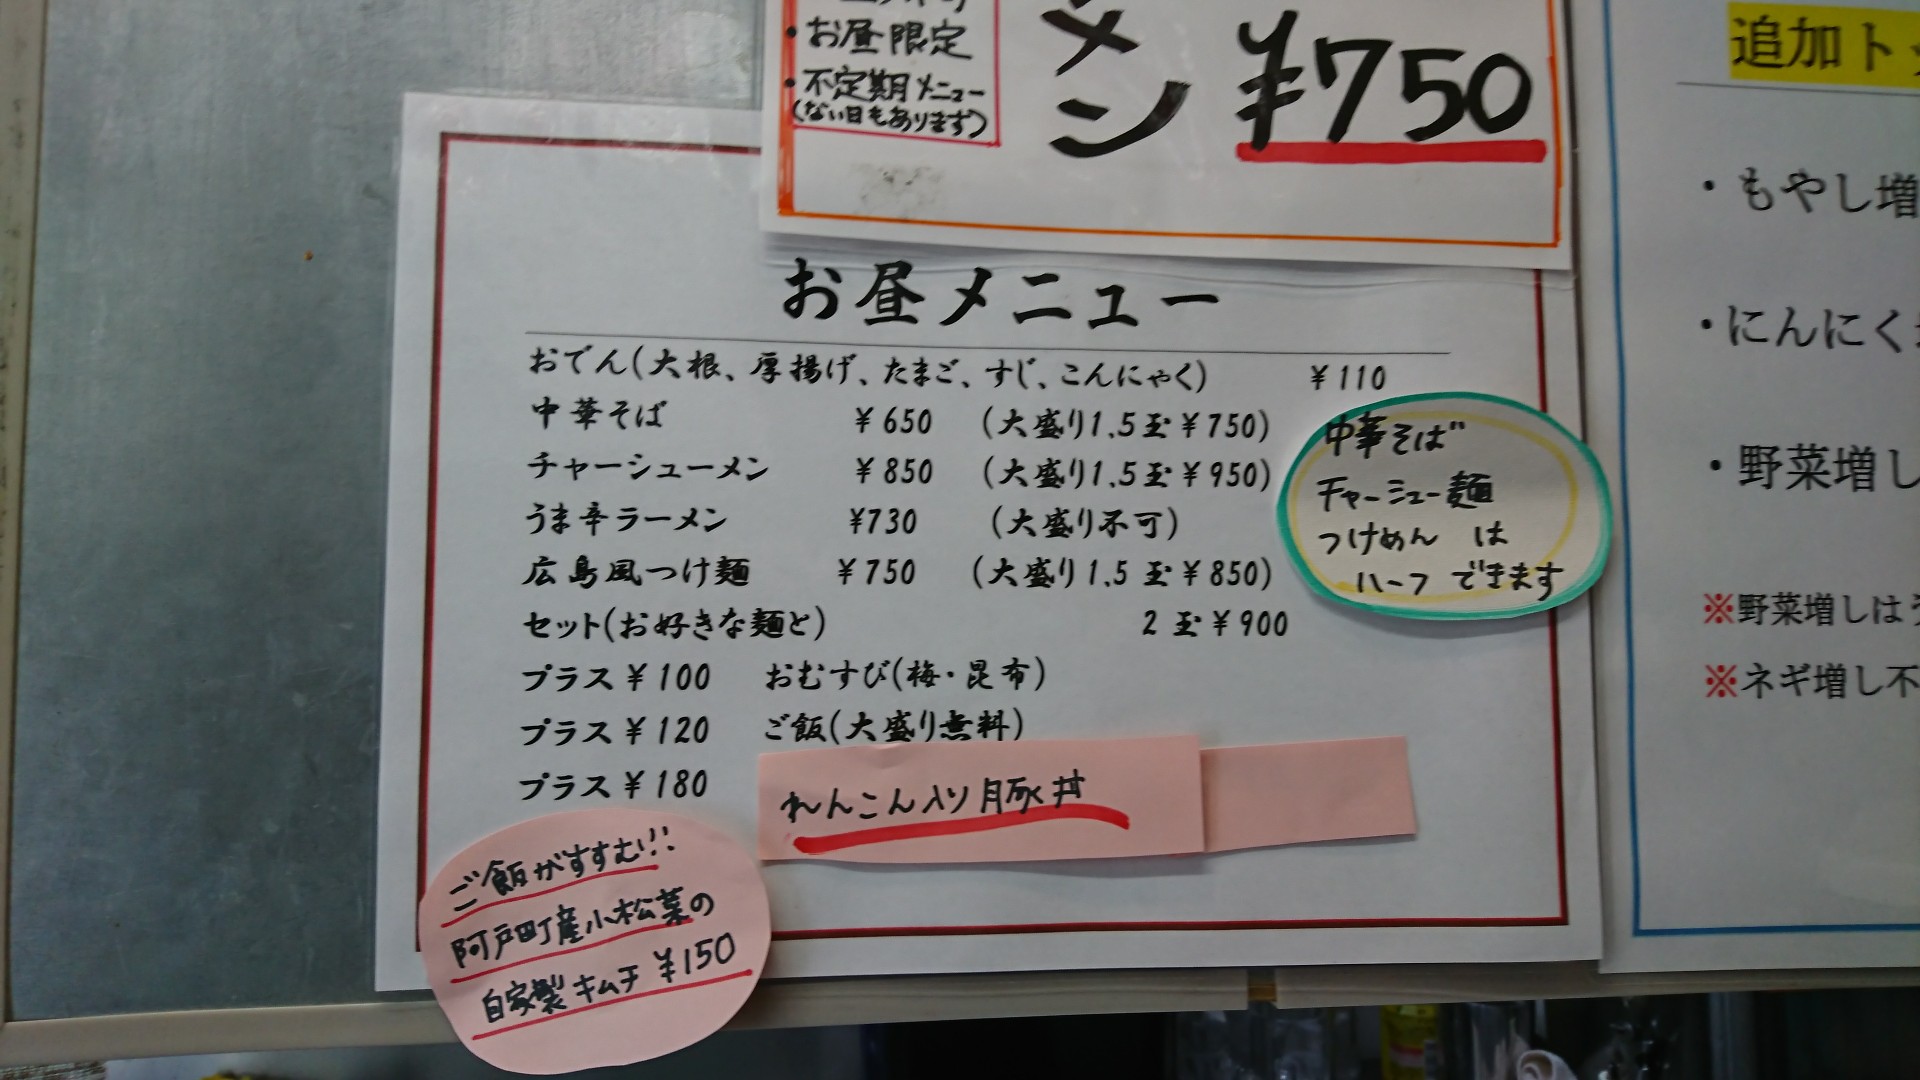 ・お昼限定
・不定期メニュー
(ない日もあります)
メン ¥750
お昼メニュー
おでん(大根、厚揚げ、たまご、すじ、こんにゃく) ¥110
中華そば ¥650 (大盛り1.5玉¥750)
チャーシューメン ¥850 (大盛り1.5玉¥950)
うま辛ラーメン ¥730 (大盛り不可)
広島風つけ麺 ¥750 (大盛り1.5玉¥850)
セット(お好きな麺と) 2玉¥900
プラス¥100 おむすび(梅・昆布)
プラス¥120 ご飯(大盛り無料)
プラス¥180 れんこん入り豚丼
中華そば
チャーシュー麺
つけめん は
ハーフ できます
ご飯がすすむ!!
阿戸町産小松菜の
自家製キムチ ¥150
追加ト
・もやし増
・にんにく
・野菜増し
※野菜増しは
※ネギ増し不